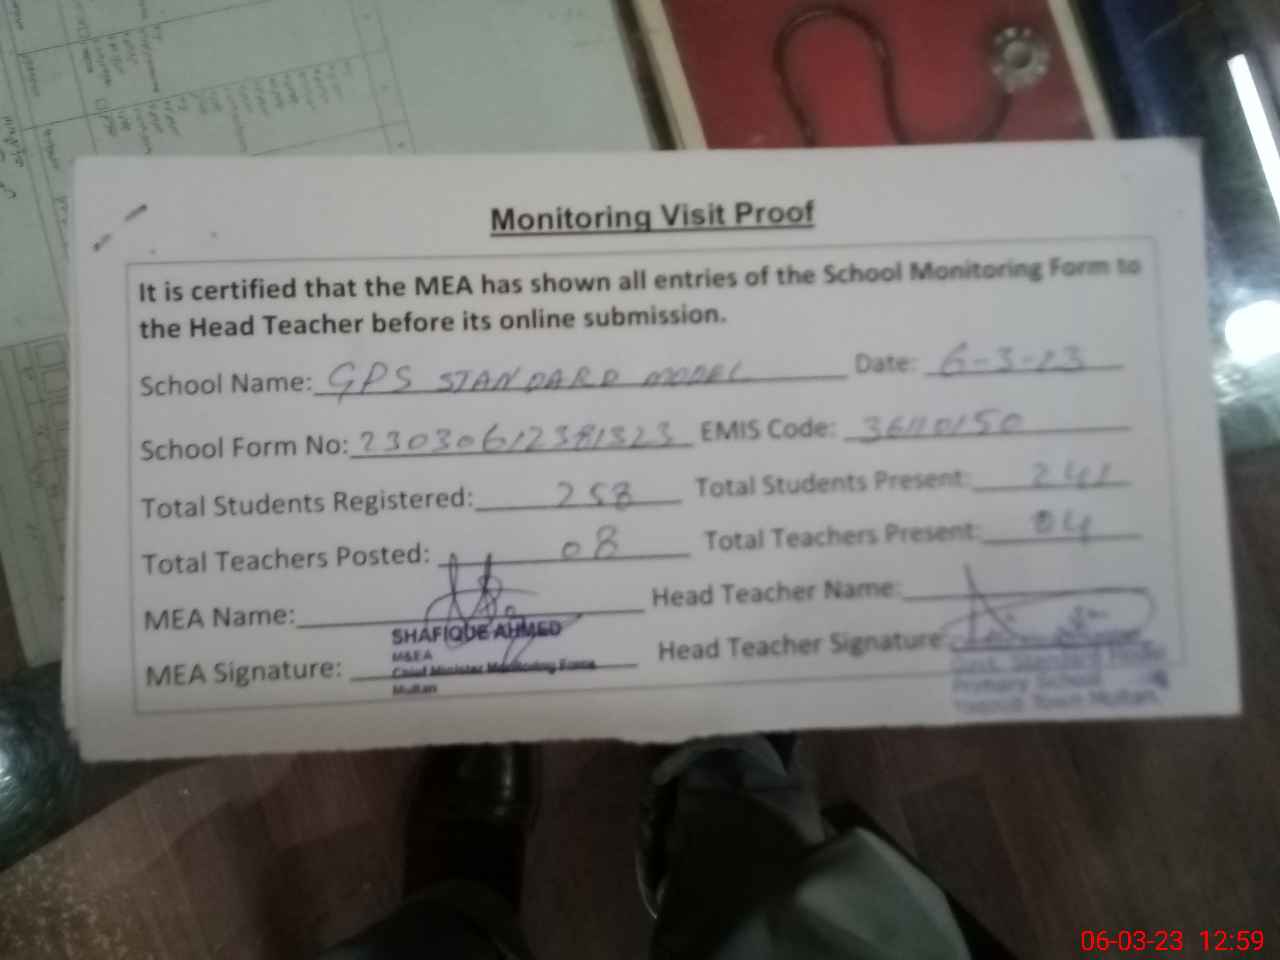 Monitoring Visit Proof
It is certified that the MEA has shown all entries of the School Monitoring Form to
the Head Teacher before its online submission.
School Name: GPS STANDARD MODEL Date: 6-3-23
School Form No: 23030612381323 EMIS Code: 36110150
Total Students Registered: 258 Total Students Present: 241
Total Teachers Posted: 08 Total Teachers Present: 04
MEA Name: Head Teacher Name:
SHAFIQUE AHMED
MEA Signature: Head Teacher Signature
M&EA
Chief Minister Monitoring Force
Multan
Govt. Standard Model
Primary School
Town Multan
06-03-23 12:59